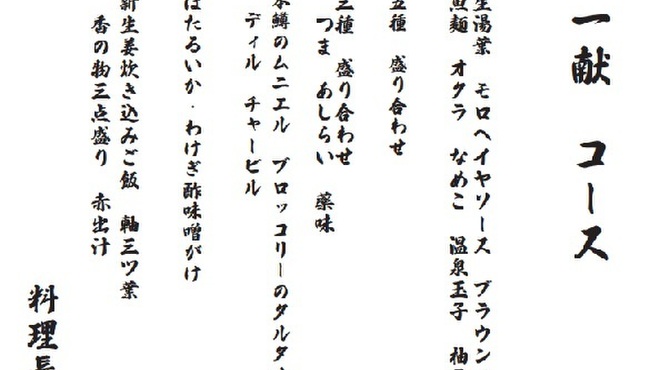 一献　コース
生湯葉　モロヘイヤソース　ブラウン
魚麺　オクラ　なめこ　温泉玉子　柚
五種　盛り合わせ
三種　盛り合わせ
つま　あしらい　薬味
本鱒のムニエル　ブロッコリーのタルタ
ディル　チャービル
ほたるいか・わけぎ酢味噌がけ
新生姜炊き込みご飯　軸三ツ葉
香の物三点盛り　赤出汁
料理長